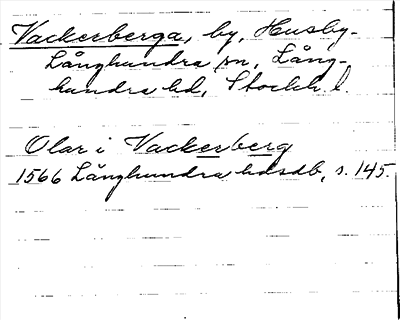 Vackerberga, by, Husby-
Långhundra sn, Lång-
hundra hd, Stockh. l.
Olar i Vackerberg
1566 Långhundra hdsdb, s. 145.